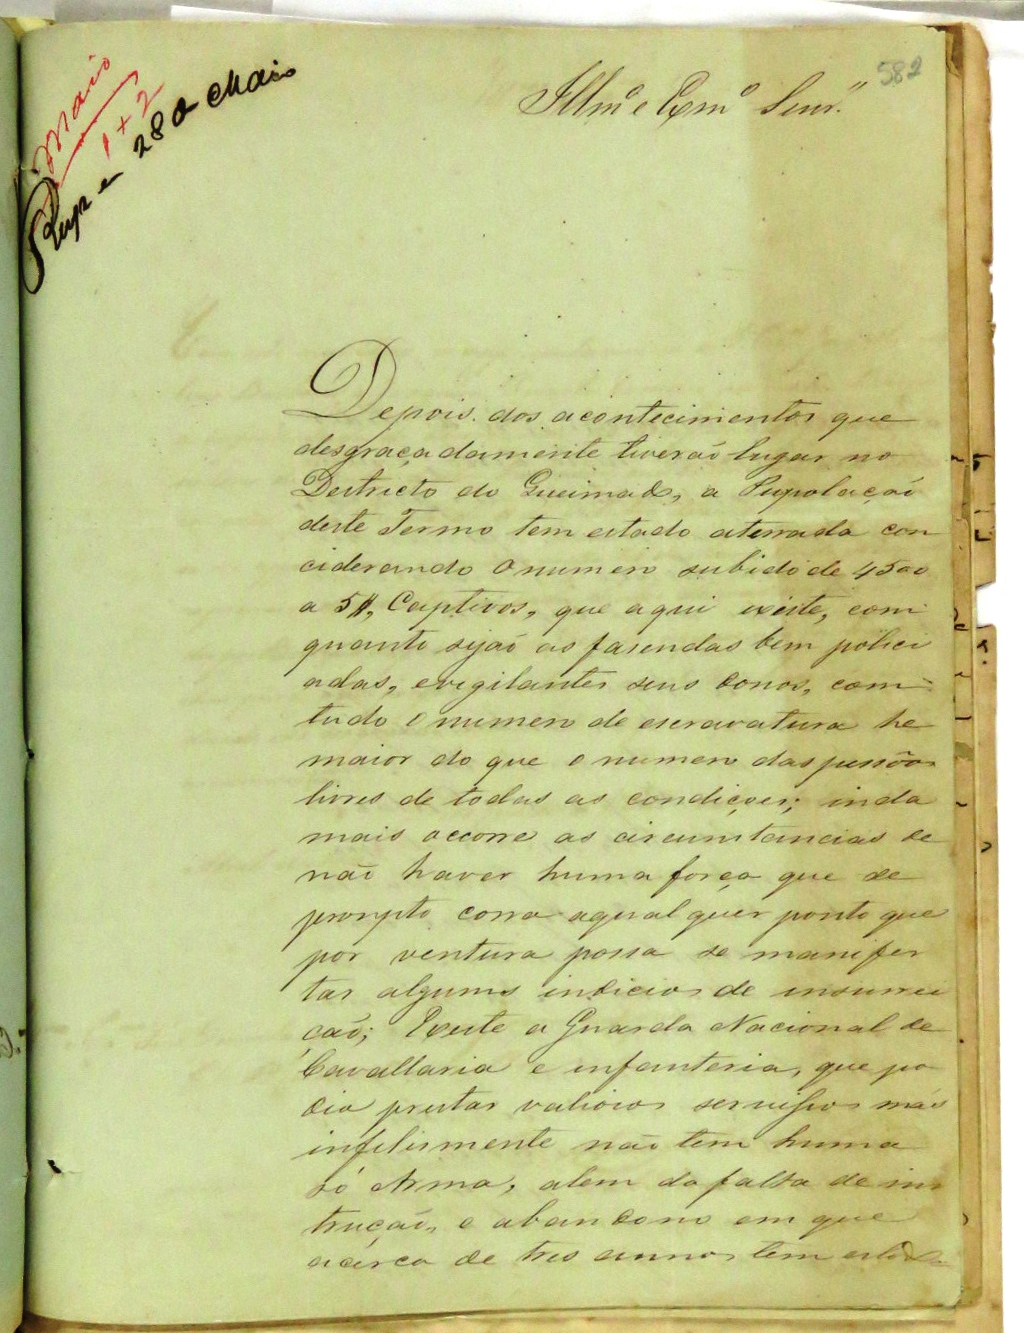 582
Maio
1+2
Resp em 28 de Maio
Illmº e Exmº Senr.
Depois dos acontecimentos que
desgraçadamente tiverão lugar no
Destricto do Queimado, a Populaçaõ
deste Termo tem estado aterrada con
ciderando o numero subido de 4500
a 5$, Captivos, que aqui existe, com
quanto sejaõ as fasendas bem polici
adas, e vigilantes seus donos, com
tudo o numero de escravatura he
maior do que o numero das pessõas
livres de todas as condições; inda
mais occorre as circunstancias de
não haver huma força que de
prompto corra aqual quer ponto que
por ventura possa se manifes
tar alguns indicios de insurrei
çaõ; Existe a Guarda Nacional de
Cavallaria e infanteria, que po
dia prestar valiosos serviços mas
infelismente não tem huma
só Arma, alem da falta de ins
truçaõ, e abandono em que
acerca de tres annos tem estado